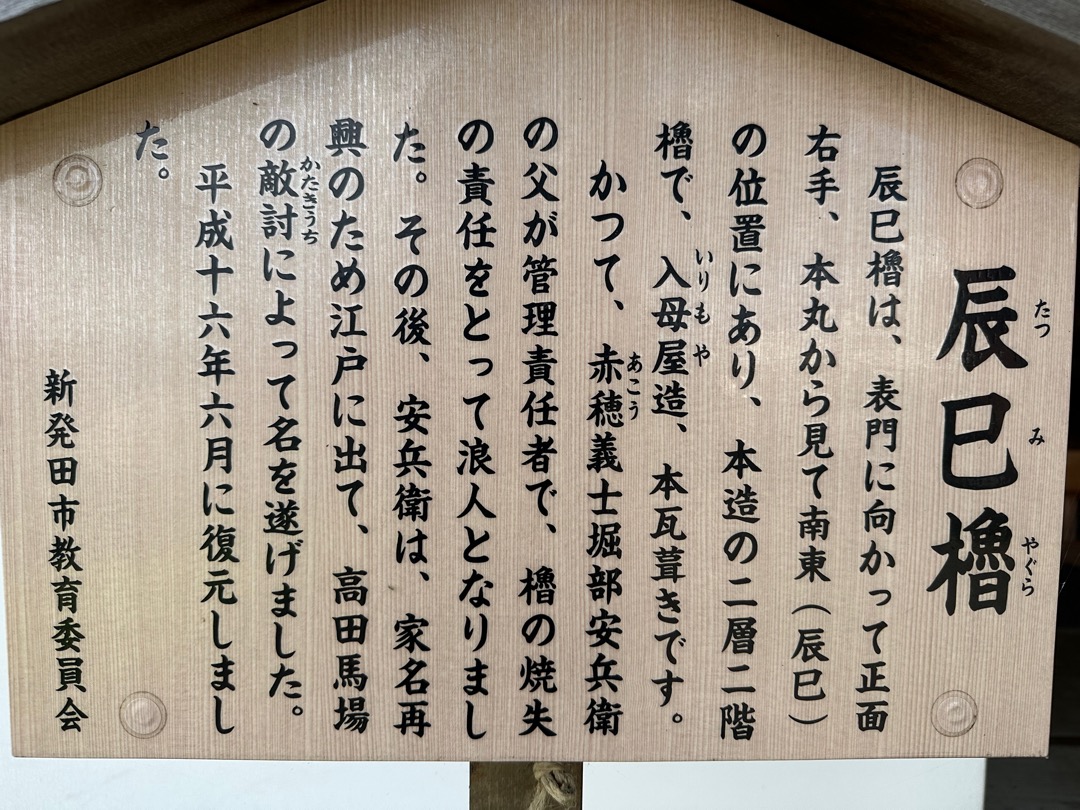 辰巳櫓
たつ
み
やぐら
辰巳櫓は、表門に向かって正面
右手、本丸から見て南東（辰巳）
の位置にあり、本造の二層二階
櫓で、入母屋造、本瓦葺きです。
いりもや
かつて、赤穂義士堀部安兵衛
あこう
の父が管理責任者で、櫓の焼失
の責任をとって浪人となりまし
た。その後、安兵衛は、家名再
興のため江戸に出て、高田馬場
の敵討によって名を遂げました。
かたきうち
平成十六年六月に復元しまし
た。
新発田市教育委員会